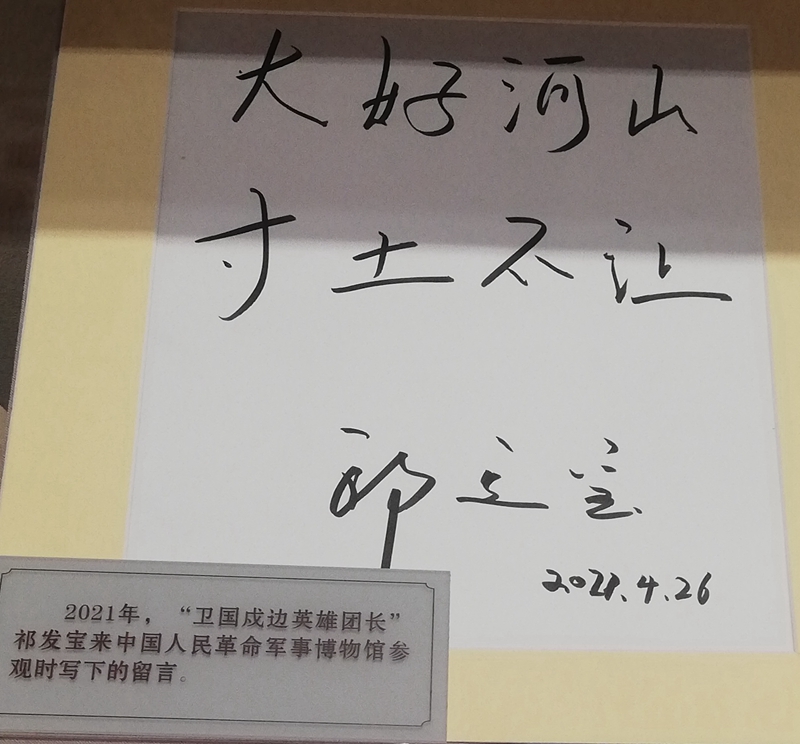 大好河山
寸土不让
祁发宝
2021.4.26
2021年，“卫国戍边英雄团长”
祁发宝来中国人民革命军事博物馆参
观时写下的留言。